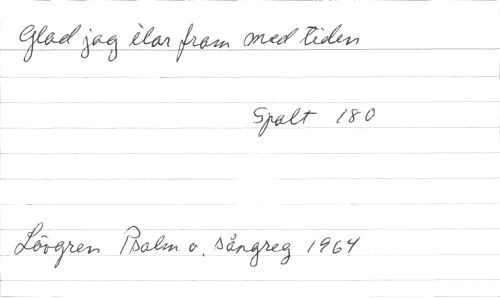 Glad jag ilar fram med tiden
Spalt 180
Lövgren Psalm o. sångreg 1964